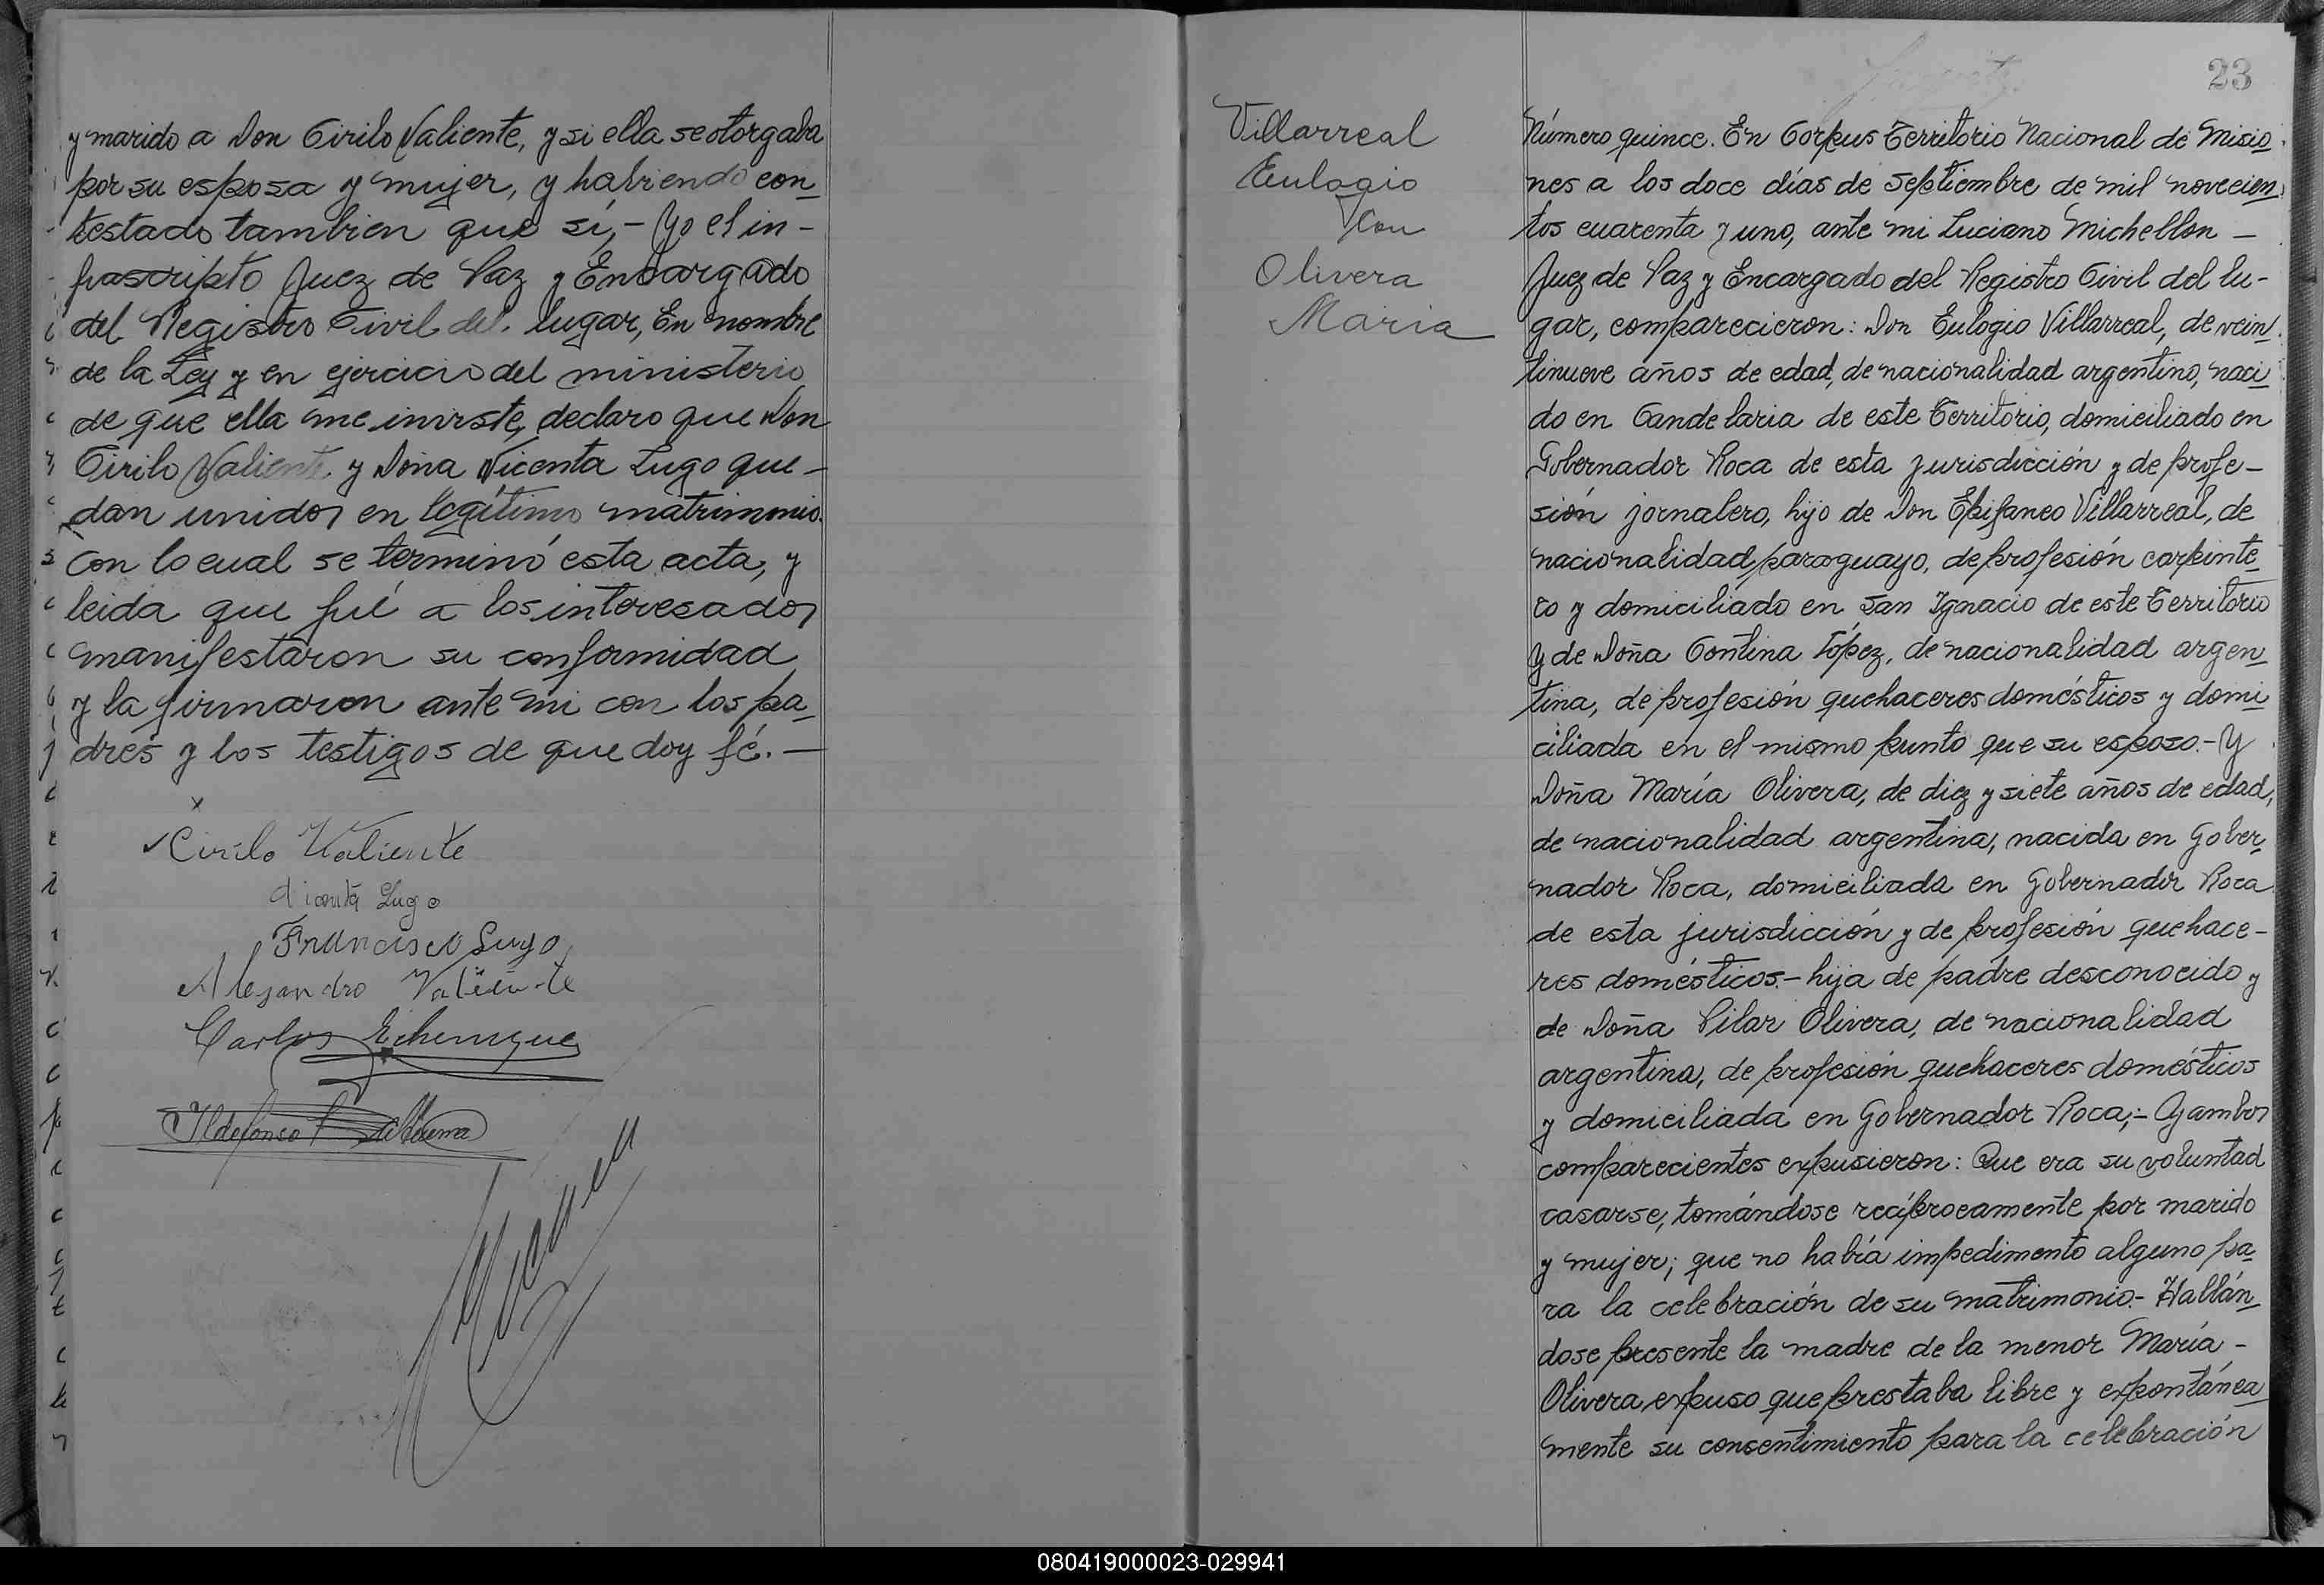 y marido a Don Cirilo Valiente, y si ella se otorgaba
por su esposa y mujer, y habiendo con_
testado tambien que sí,- Yo el in-
frascripto Juez de Paz y Encargado
del Registro Civil del lugar, En nombre
de la Ley y en ejercicio del ministerio
de que ella me inviste, declaro que Don
Cirilo Valiente y Doña Vicenta Lugo que-
dan unidos en legítimo matrimonio.
Con lo cual se terminó esta acta, y
leida que fué a los interesados
manifestaron su conformidad
y la firmaron ante mi con los pa_
dres y los testigos de que doy fé.-
Cirilo Valiente
Lugo
Francisco Lugo
Alejandro Valiente
Carlos Echenique
Ildefonso
23
Villarreal
Eulogio
con
Olivera
Maria
Número quince. En Corpus Territorio Nacional de Misio_
nes a los doce días de Septiembre de mil novecien_
tos cuarenta y uno, ante mi Luciano Michellon -
Juez de Paz y Encargado del Registro Civil del lu-
gar, comparecieron: Don Eulogio Villarreal, de vein_
tinueve años de edad, de nacionalidad argentino, naci_
do en Candelaria de este Territorio, domiciliado en
Gobernador Roca de esta jurisdicción y de profe-
sión jornalero, hijo de Don Epifaneo Villarreal, de
nacionalidad paraguayo, de profesión carpinte_
ro y domiciliado en San Ignacio de este Territorio
y de Doña Contina López, de nacionalidad argen_
tina, de profesión quehaceres domésticos y domi_
ciliada en el mismo punto que su esposo.- Y
Doña María Olivera, de diez y siete años de edad,
de nacionalidad argentina, nacida en Gober_
nador Roca, domiciliada en Gobernador Roca
de esta jurisdicción y de profesión quehace-
res domésticos.- hija de padre desconocido y
de Doña Pilar Olivera, de nacionalidad
argentina, de profesión quehaceres domésticos
y domiciliada en Gobernador Roca,- Y ambos
comparecientes expusieron: Que era su voluntad
casarse, tomándose recíprocamente por marido
y mujer; que no había impedimento alguno pa_
ra la celebración de su matrimonio.- Hallán_
dose presente la madre de la menor María -
Olivera expuso que prestaba libre y expontánea_
mente su consentimiento para la celebración
080419000023-029941